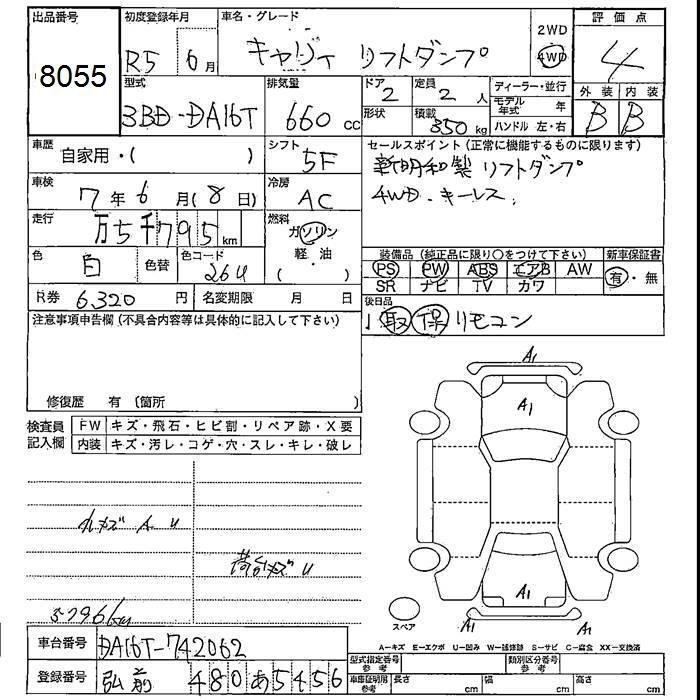 出品番号 初度登録年月 車名・グレード 2WD 評価点
8055 R5 6月 キャリィ リフトダンプ 4WD 4
型式 排気量 ドア 定員 ディーラー・並行 外装 内装
3BD-DA16T 660cc 2 2人 モデル年式 年 B B
形状 積載 350kg ハンドル 左・右
車歴 シフト セールスポイント (正常に機能するものに限ります)
自家用・( ) 5F 新明和製 リフトダンプ
車検 冷房 4WD.キーレス.
7年6月(8日) AC
走行 燃料
万5千795km ガソリン
色 色替 色コード 軽・油 装備品 (純正品に限り○をつけて下さい) 新車保証書
白 26U ( ) PS PW ABS エアB AW 有・無
SR ナビ TV カワ
R券 6,320円 名変期限 月 日 後日品
注意事項申告欄 (不具合内容等は具体的に記入して下さい) 取 保 リモコン
修復歴 有 (箇所
検査員 FW キズ・飛石・ヒビ割・リペア跡・X要
記入欄 内装 キズ・汚レ・コゲ・穴・スレ・キレ・破レ
A1
A1
A U
荷台 U
5796km
A1
A1
スペア
A-キズ E-エクボ U-凹み W-補修跡 S-サビ C-腐食 XX-交換済
車台番号 DA16T-742062
型式指定番号 参考 類別区分番号 参考
登録番号 弘前 480 あ5456
車庫証明用 参考 長さ cm 幅 cm 高さ cm